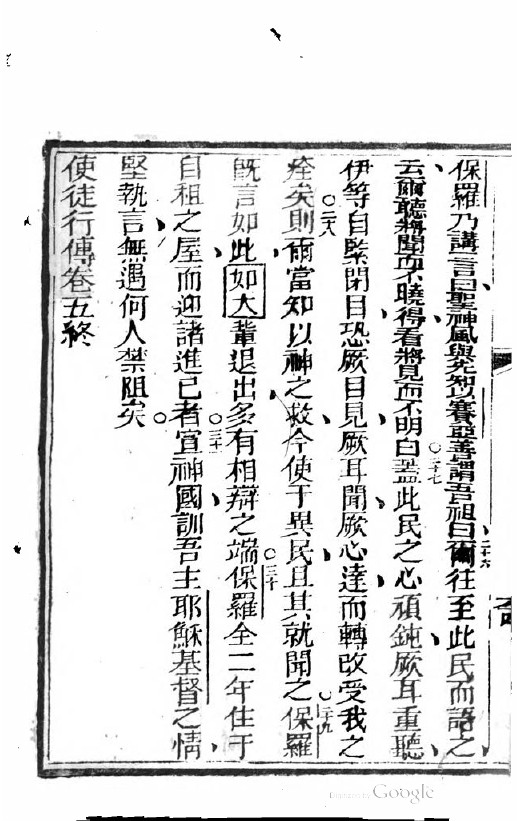 保羅乃講一言曰聖神風與先知以賽亞善謂吾祖曰二十六爾往至此民而語之
云爾聽將聞而不曉得看將見而不明白二十七蓋此民之心頑鈍厥耳重聽
伊等自緊閉目恐厥目見厥耳聞厥心達而轉改受我之
痊矣二十八則爾當知以神之救今使于異民且其就聞之二十九保羅
既言如此如大輩退出多有相辯之端三十保羅全二年住于
自租之屋而迎諸進己者三十一宣神國訓吾主耶穌基督之情
堅執言無遇何人禁阻矣
使徒行傳卷五終
Digitized by Google